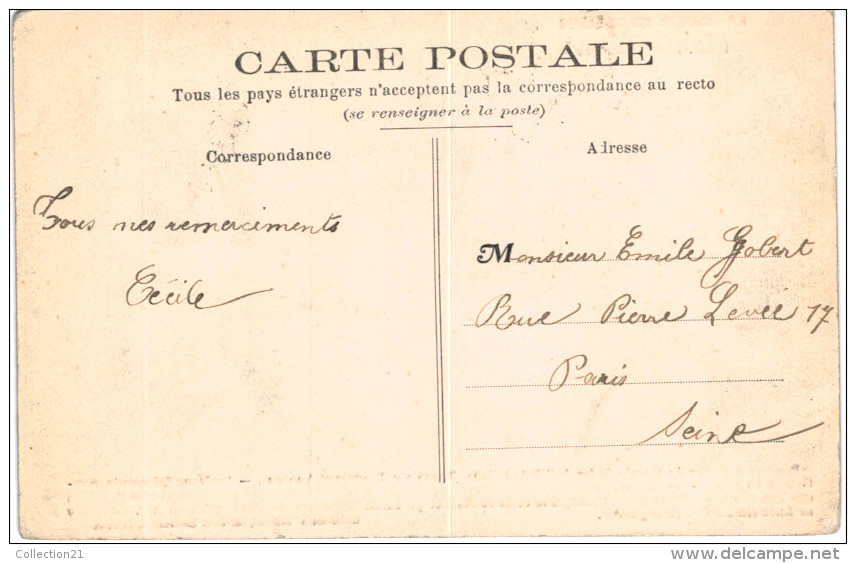 CARTE POSTALE
Tous les pays étrangers n'acceptent pas la correspondance au recto
(se renseigner à la poste)
Correspondance
Adresse
Tous mes remerciments
Cécile
Monsieur Emile Gobert
Rue Pierre Levée 17
Paris
Seine
Collection21
delcampe.net